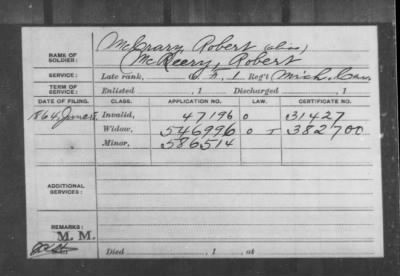 McCrary, Robert (alias)
McReery, Robert
NAME OF SOLDIER:
SERVICE: Late rank, 1 Reg't Mich. Cav.
TERM OF SERVICE: Enlisted , 1 Discharged , 1
DATE OF FILING. CLASS. APPLICATION NO. LAW. CERTIFICATE NO.
1864, June Invalid, 47196 0 31427
Widow, 546996 0 382700
Minor, 586514
ADDITIONAL SERVICES:
REMARKS:
M. M.
Died , 1 , at